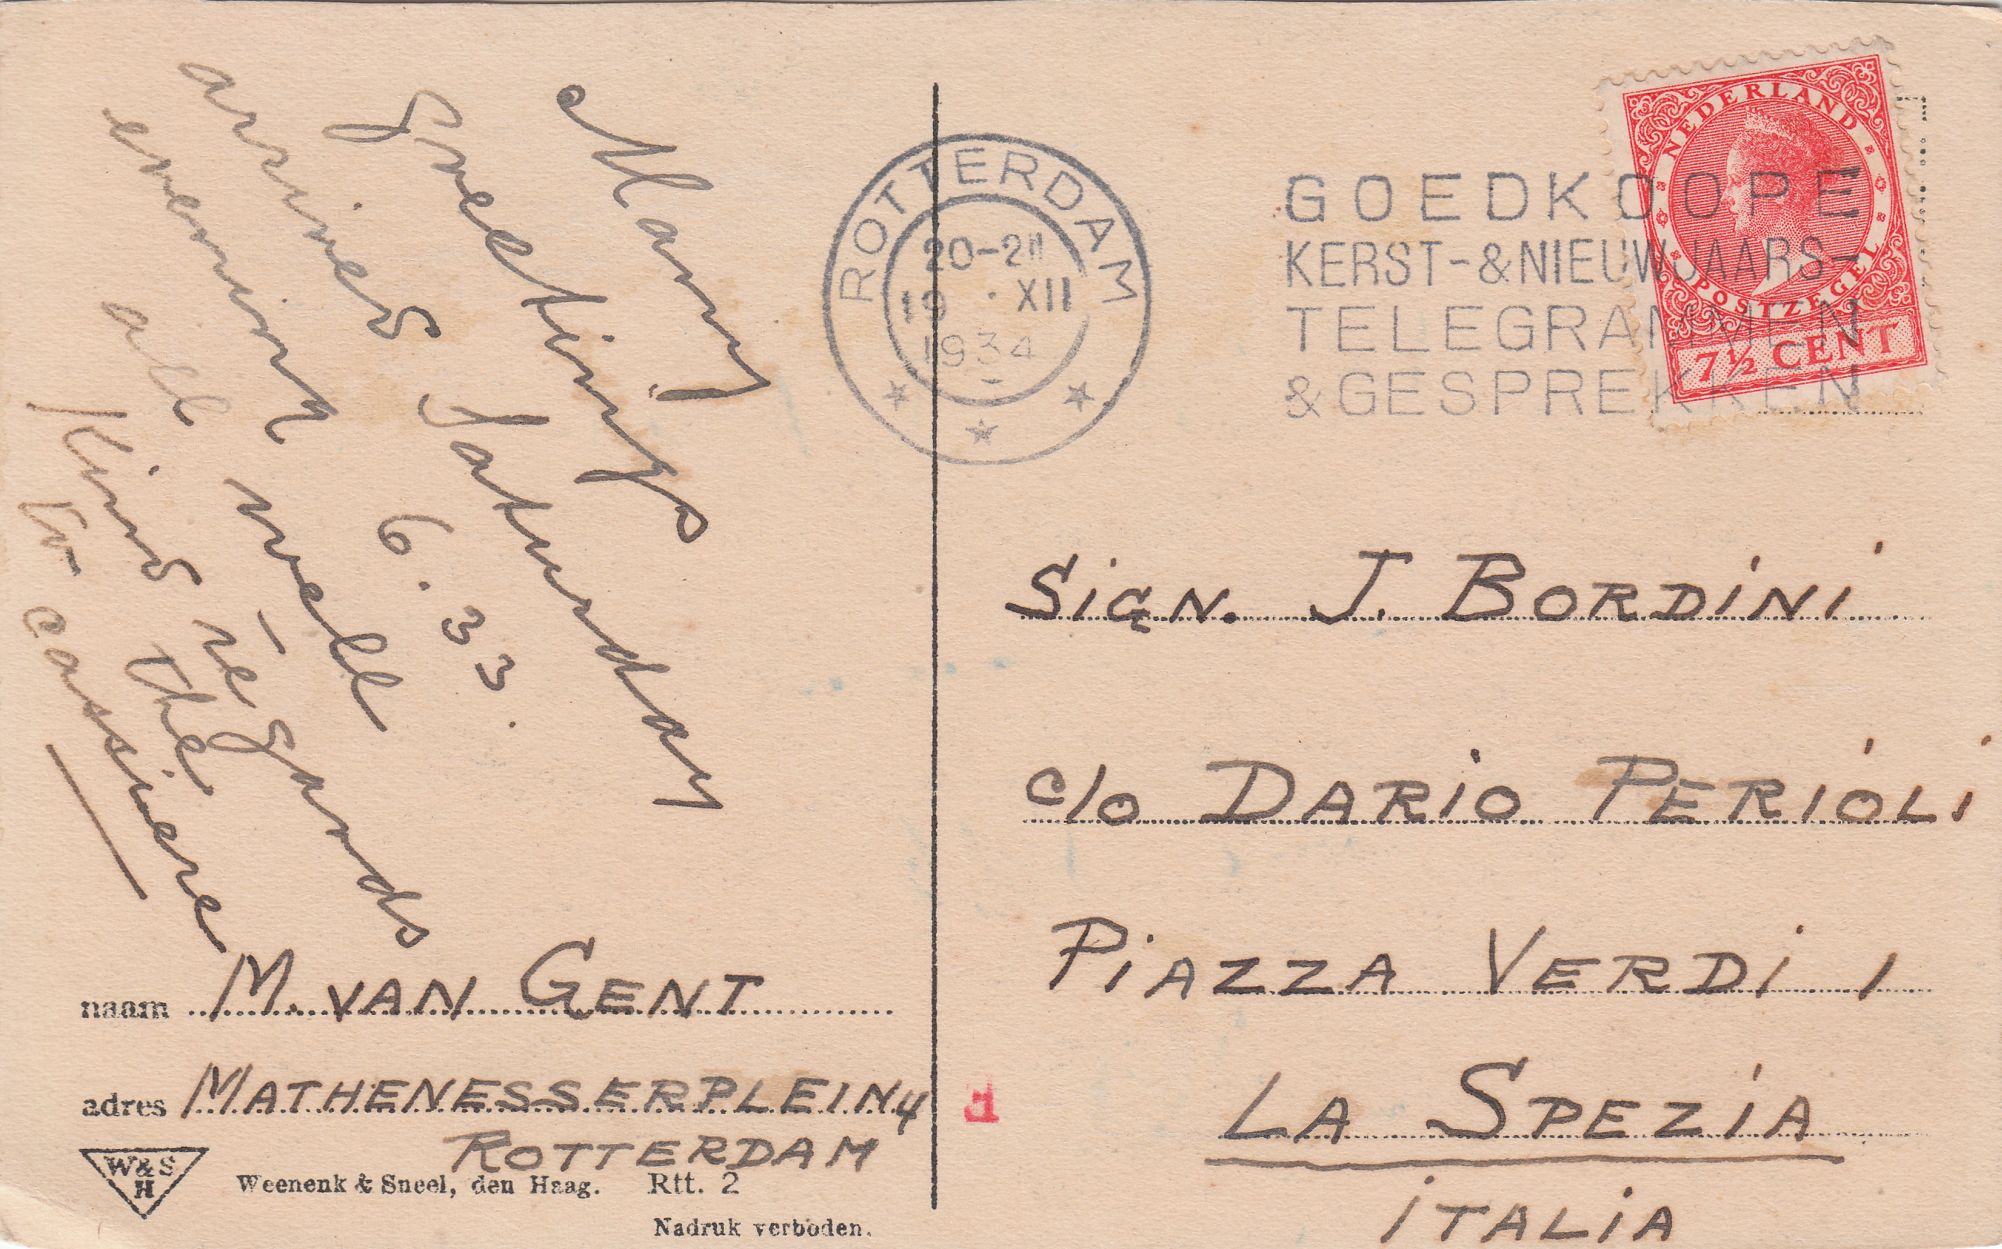 Many
greetings
arrived Saturday
evening 6.33.
all well
Kind re-gards
to the
cassiere
naam M. VAN GENT
adres MATHENESSERPLEIN 4
ROTTERDAM
W&S
H
Weenenk & Sneel, den Haag. Rtt. 2
Nadruk verboden.
ROTTERDAM
19 XII
1934
GOEDKOOPE
KERST-&NIEUWJAARS-
TELEGRAMMEN
&GESPREKKEN
NEDERLAND
POSTZEGEL
7½ CENT
SIGN. J. BORDINI
c/o DARIO PERIOLI
PIAZZA VERDI 1
LA SPEZIA
ITALIA